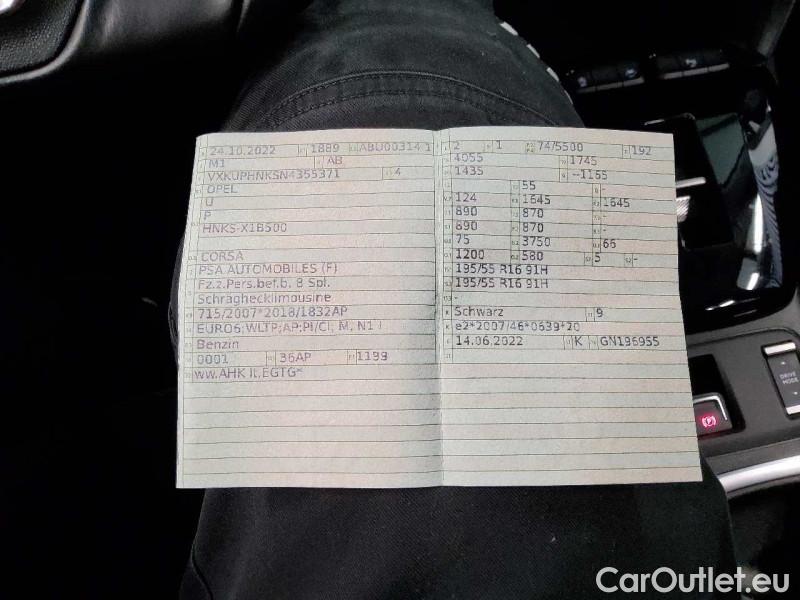 24.10.2022 1889 ABU00314 1
M1 AB
VXKUPHNKSN4355371 4
OPEL
U
P
HNKS-X1B500
CORSA
PSA AUTOMOBILES (F)
Fz.z.Pers.bef.b. 8 Spl.
Schräghecklimousine
715/2007*2018/1832AP
EURO6;WLTP;AP:PI/CI, M, N1 I
Benzin
0001 36AP 1199
ww.AHK lt.EGTG*
2 1 74/5500 192
4055 1745
1435 --1155
55 -
124 1645 1645
890 870 -
890 870 -
75 3750 66
1200 580 5 -
195/55 R16 91H
195/55 R16 91H
-
Schwarz 9
e2*2007/46*0639*20
14.06.2022 K GN196955
DRIVE
MODE
CarOutlet.eu